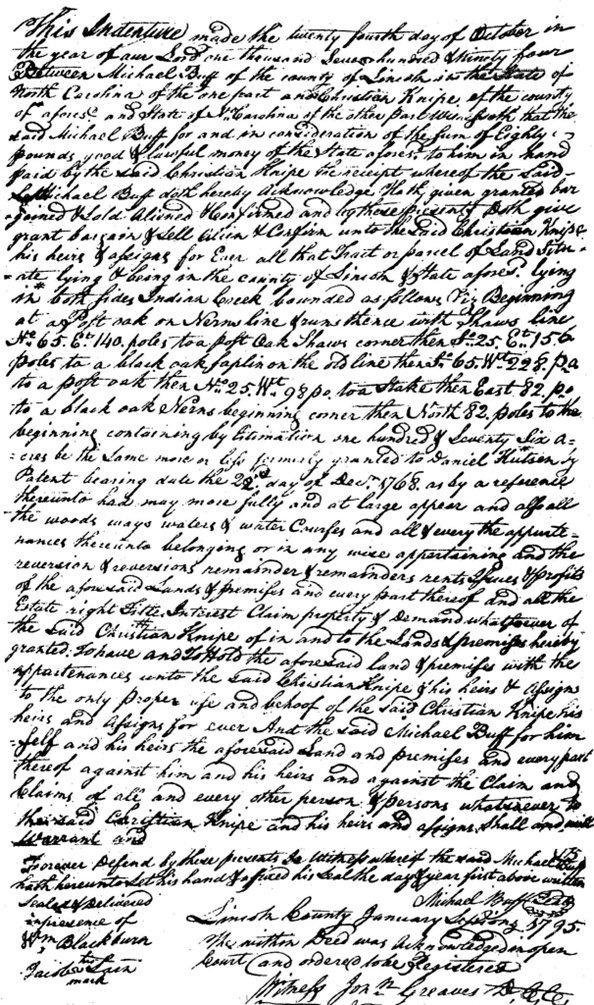 This Indenture made the twenty fourth day of October in
the year of our Lord one thousand Seven hundred & ninety four
Between Michael Buff of the county of Lincoln in the State of
North Carolina of the one part and Christian Knipe of the county
of aforesd. and State of N. Carolina of the other part Witnesseth that the
said Michael Buff for and in consideration of the sum of Eighty
pounds good & lawful money of the State aforesd. to him in hand
paid by the said Christian Knipe the receipt whereof the said
Michael Buff doth hereby Acknowledge Hath given granted bar
gained & Sold Aliened & Confirmed and by these presents Doth give
grant bargain & Sell Alien & Confirm unto the Said Christian Knipe
his heirs & assigns for Ever all that Tract or parcel of Land Situ-
-ate lying & being in the county of Lincoln & State afores. lying
in both sides Indian Creek bounded as follows Viz Beginning
at a Post oak on Nerns line & runs thence with Shaws line
No. 65. Et. 140. poles to a post Oak Shaws corner then So. 25. Et. 156
poles to a black oak saplin on the old line then So. 65. Wt. 228. po
to a post oak then No. 25. Wt. 98 po. to a Stake then East. 82. po
to a black oak Nerns beginning corner then North 82. poles to the
beginning containing by Estimation one hundred & Seventy Six a=
=cres be the Same more or less formerly granted to Daniel Hutsen by
Patent bearing date the 22d day of Decr. 1768. as by a reference
thereunto had may more fully and at large appear and also all
the woods ways waters & water Courses and all & every the appurte=
nances thereunto belonging or in any wise appertaining and the
reversion & reversions remainder & remainders rents Issues & Profits
of the aforesaid Lands & premises and every part thereof and all the
Estate right Title Interest Claim property & Demand whatsoever of
the said Christian Knipe of in and to the Lands & premises hereby
granted. To have and To Hold the aforesaid land & premises with the
appurtenances unto the said Christian Knipe & his heirs & assigns
to the only proper use and behoof of the said Christian Knipe his
heirs and assigns for ever And the said Michael Buff for him
-self and his heirs the aforesaid Land and premises and every part
thereof against him and his heirs and against the Claim and
Claims of all and every other person & persons whatsoever to
the said Christian Knipe and his heirs and assigns Shall and will
Warrant and
Forever Defend by these presents In Witness whereof the said Michael Buff
hath hereunto set his hand & afixed his Seal the day & year first above written
Sealed & Delivered Michael Buff Seal
in presence of Lincoln County January Sessions 1795.
Wm Blackburn The within Deed was acknowledged in open
Jacob his Lain Court and ordered to be Registered
mark Witness Jonn Greaves